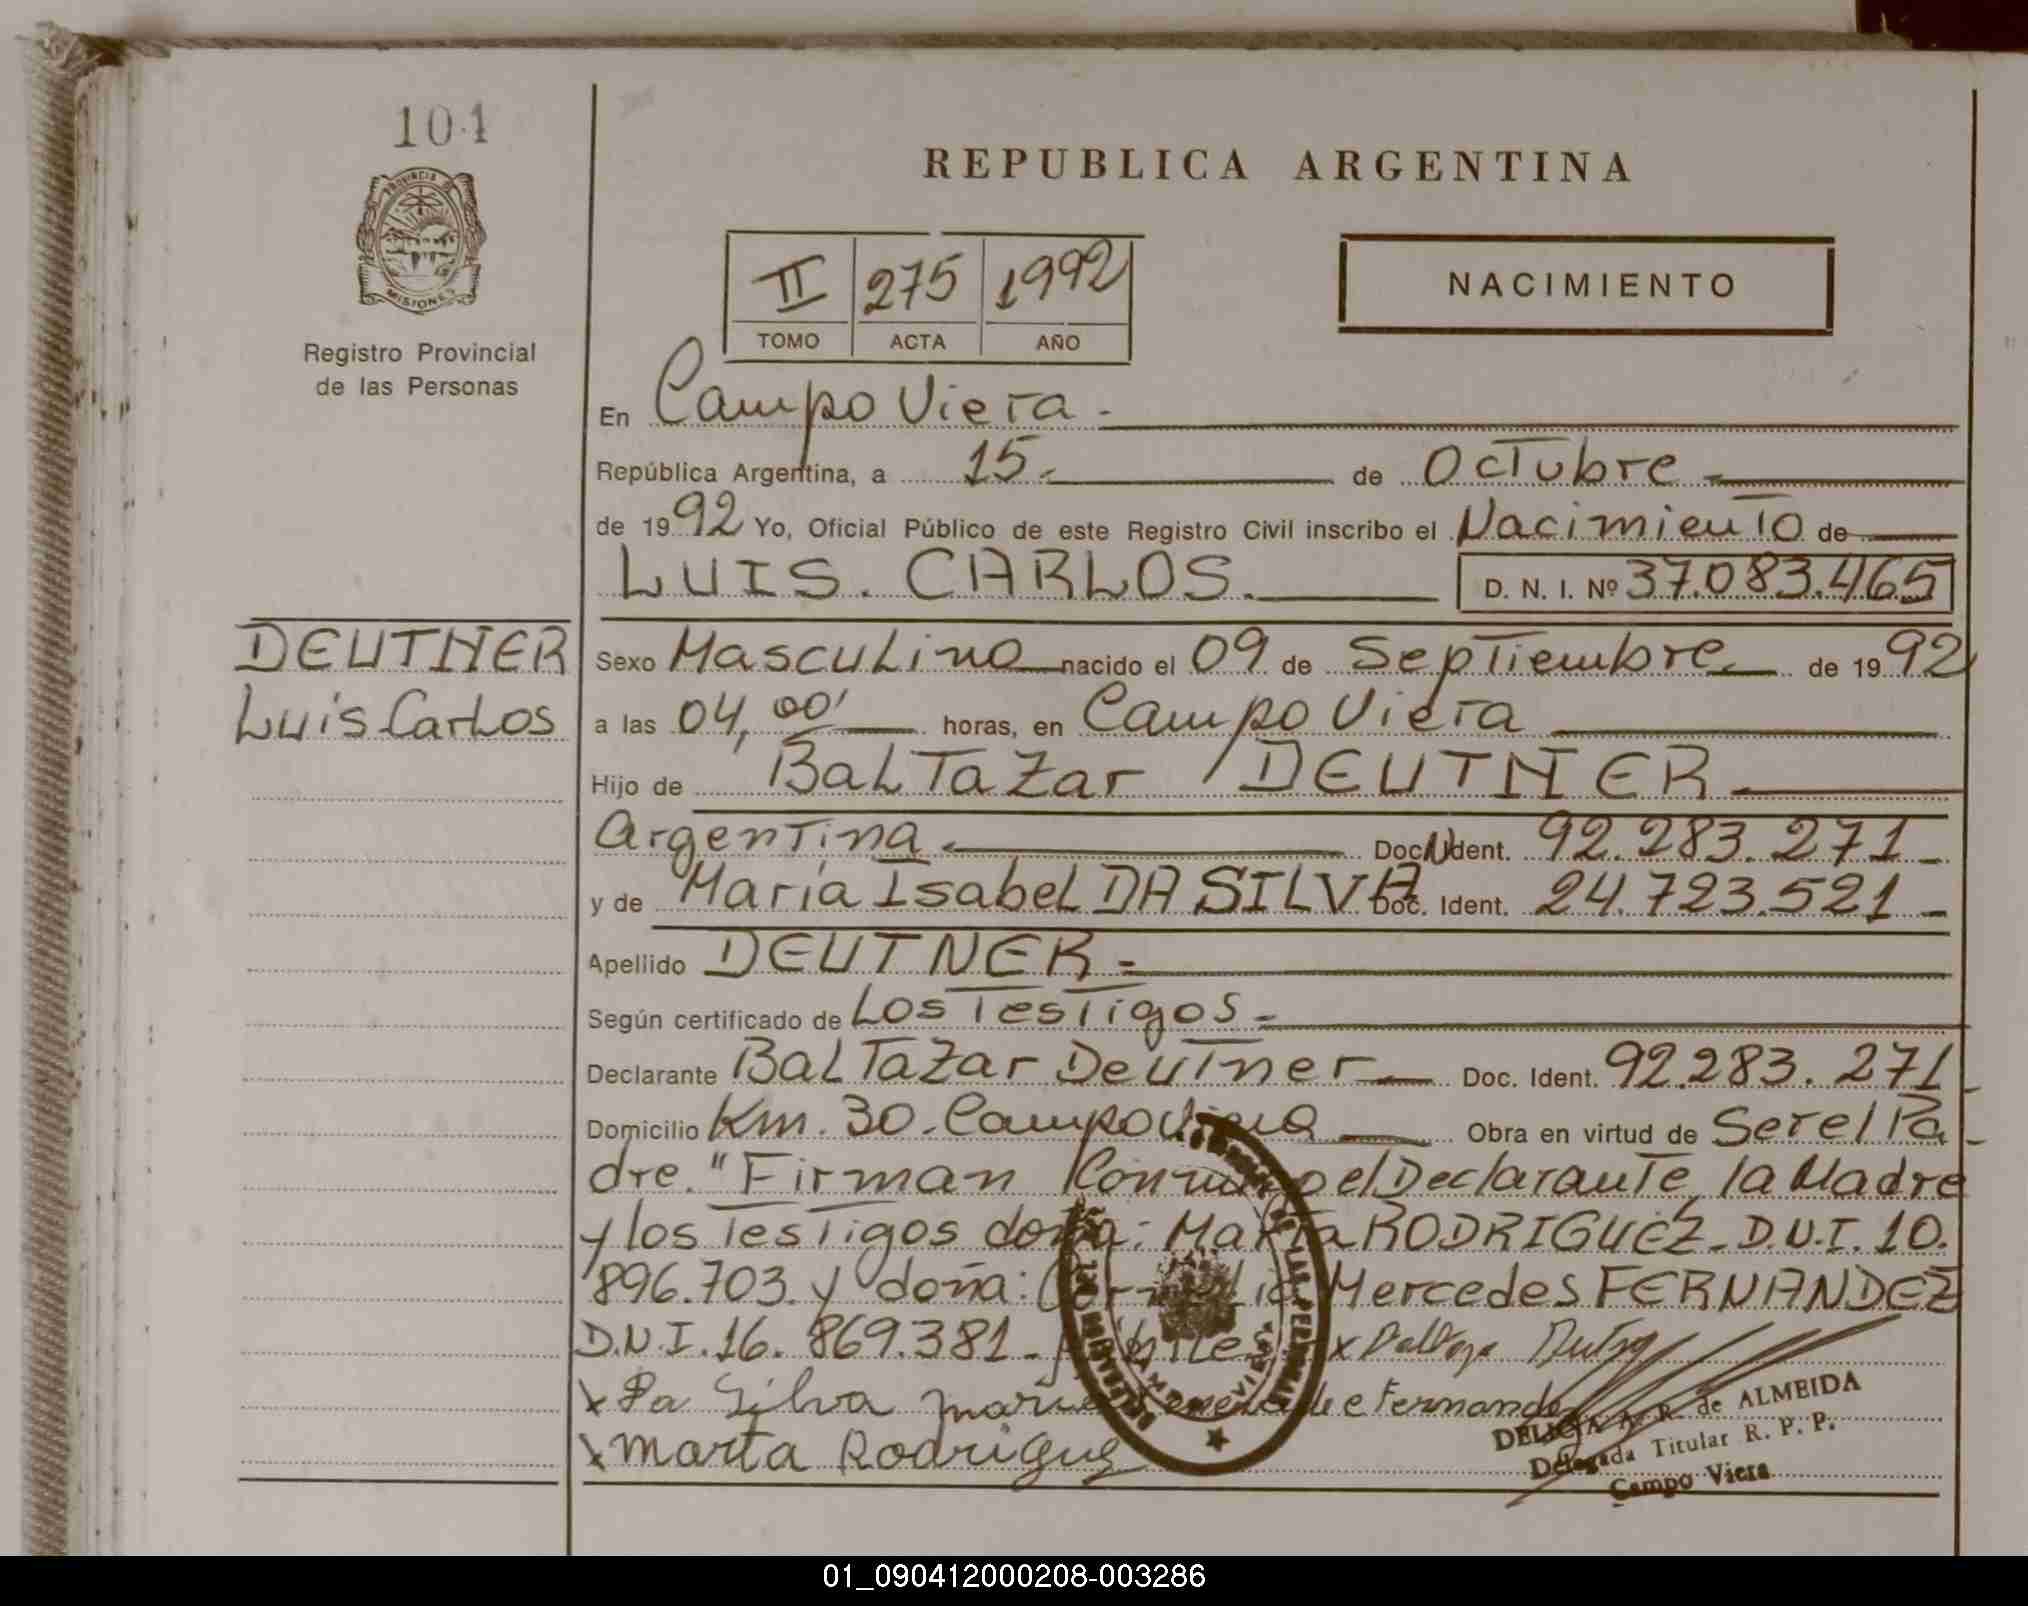 101
PROVINCIA DE
MISIONES
Registro Provincial
de las Personas
DEUTNER
Luis Carlos
REPUBLICA ARGENTINA
II 275 1992
TOMO ACTA AÑO
NACIMIENTO
En Campo Viera -
República Argentina, a 15- de Octubre -
de 1992 Yo, Oficial Público de este Registro Civil inscribo el Nacimiento de
LUIS. CARLOS. D. N. I. Nº 37.083.465
Sexo Masculino nacido el 09 de Septiembre de 1992
a las 04,00' horas, en Campo Viera
Hijo de Baltazar DEUTNER
Argentina. Doc. Ident. 92.283.271-
y de María Isabel DA SILVA Doc. Ident. 24.723.521-
Apellido DEUTNER-
Según certificado de Los Testigos-
Declarante Baltazar Deutner Doc. Ident. 92.283.271-
Domicilio Km. 30. Campo Viera Obra en virtud de Ser el Pa-
dre." Firman Conmigo el Declarante, la Madre
y los Testigos doña: Marta RODRIGUEZ-D.N.I. 10.
896.703. y doña: Mercedes FERNANDEZ
D.N.I. 16.869.381- x
x Da Silva maria de Fernandez
x Marta Rodriguez
DELICIA A. R. de ALMEIDA
Delegada Titular R. P. P.
Campo Viera
01_090412000208-003286